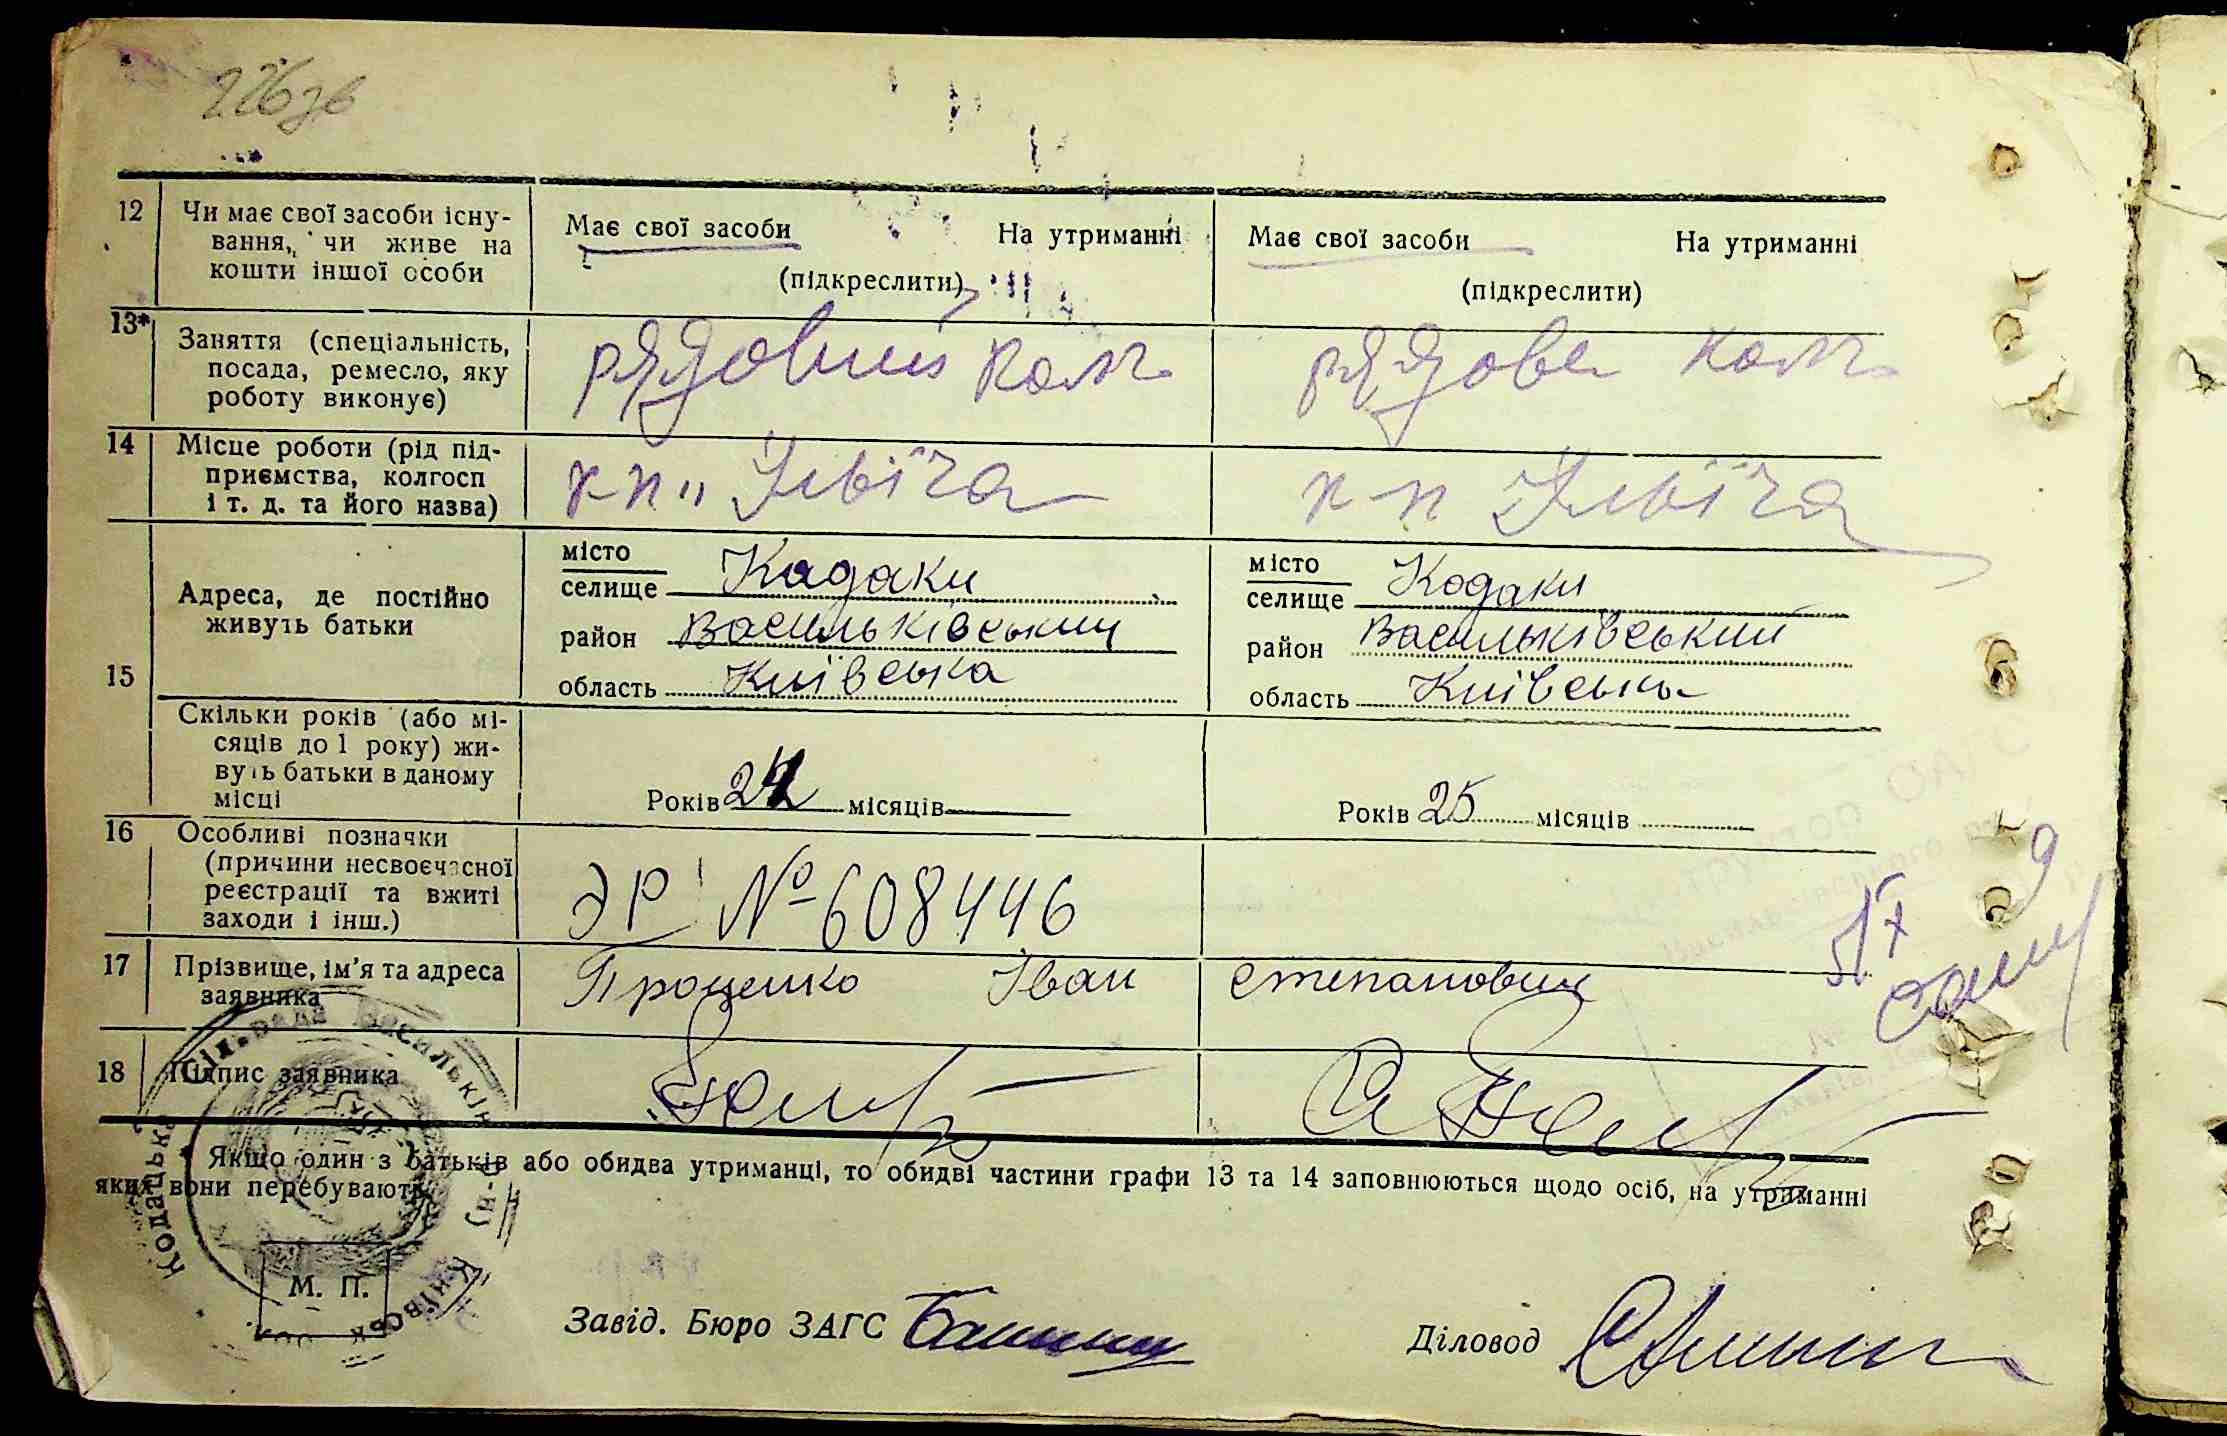 226зв
12 Чи має свої засоби існу-
вання, чи живе на
кошти іншої особи
Має свої засоби На утриманні
(підкреслити)
Має свої засоби На утриманні
(підкреслити)
13* Заняття (спеціальність,
посада, ремесло, яку
роботу виконує)
рядовий колг
рядова колг
14 Місце роботи (рід під-
приємства, колгосп
і т. д. та його назва)
к-п „ Ільїча
к-п Ільїча
15
Адреса, де постійно
живуть батьки
місто
селище Кадаки
район Васильківський
область Київська
місто
селище Кодаки
район Васильківський
область Київська
Скільки років (або мі-
сяців до 1 року) жи-
вуть батьки в даному
місці
Років 24 місяців
Років 25 місяців
16 Особливі позначки
(причини несвоєчасної
реєстрації та вжиті
заходи і інш.)
ЭР № 608446
17 Прізвище, ім’я та адреса
заявника
Проценко Іван Степанович
18 Підпис заявника
* Якщо один з батьків або обидва утриманці, то обидві частини графи 13 та 14 заповнюються щодо осіб, на утриманні
яких вони перебувають.
М. П.
Завід. Бюро ЗАГС
Діловод